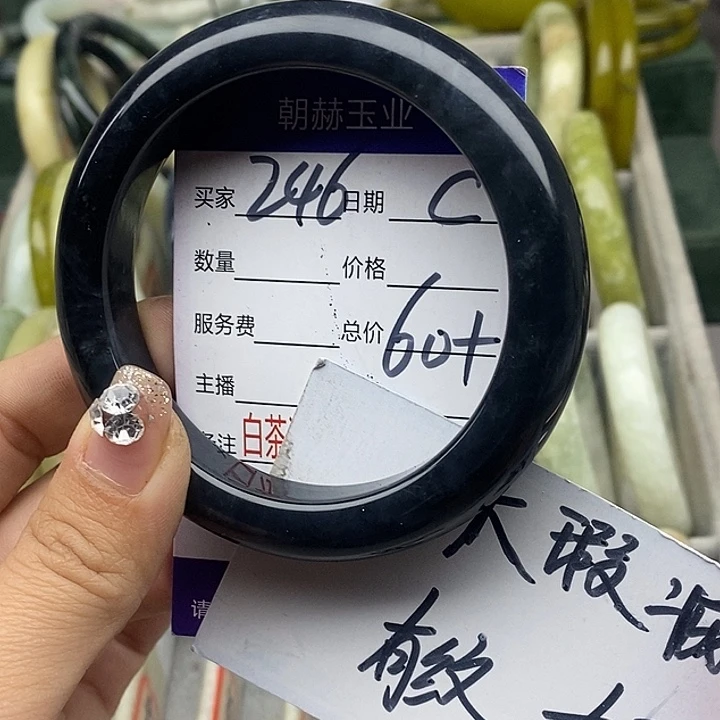 朝赫玉业
买家 246 日期 C
数量 价格
服务费 总价 60+
主播
备注 白茶
请
天瑕疵
有纹